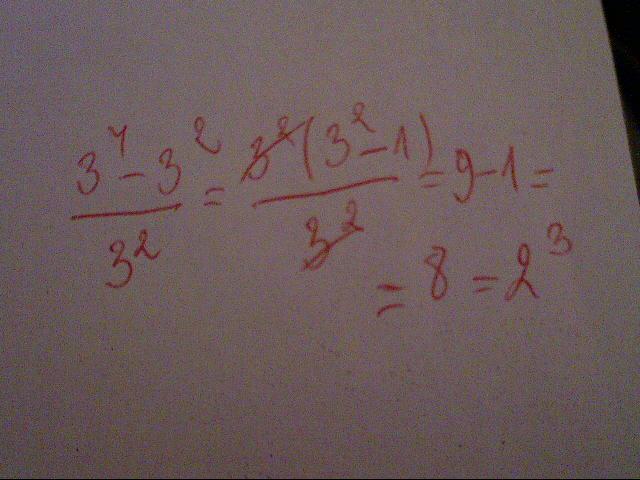 (3⁴ - 3²)/3² = (3²(3² - 1))/3² = 9 - 1 =
= 8 = 2³